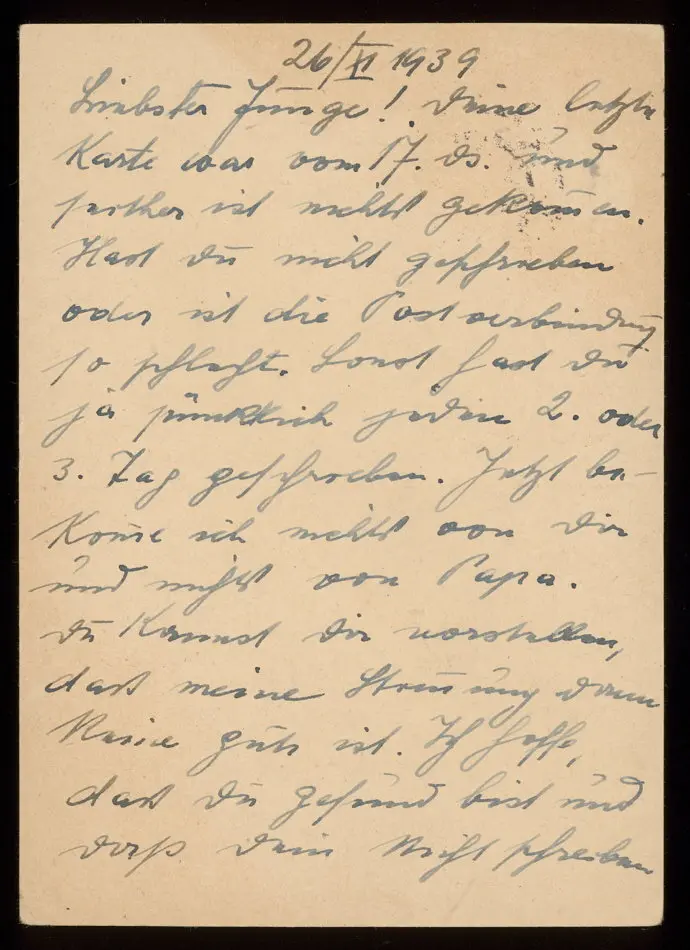 26/XI 1939
Liebster Junge! Deine letzte
Karte war vom 17. ds. und
seither ist nichts gekom̅en.
Hast du nicht geschrieben
oder ist die Postverbindung
so schlecht. Sonst hast du
ja pünktlich jeden 2. oder
3. Tag geschrieben. Jetzt be-
kom̅e ich nichts von dir
und nichts von Papa.
du kannst dir vorstellen,
dass meine Stim̅ung dann
keine gute ist. Ich hoffe,
dass du gesund bist und
dass dein Nicht schreiben